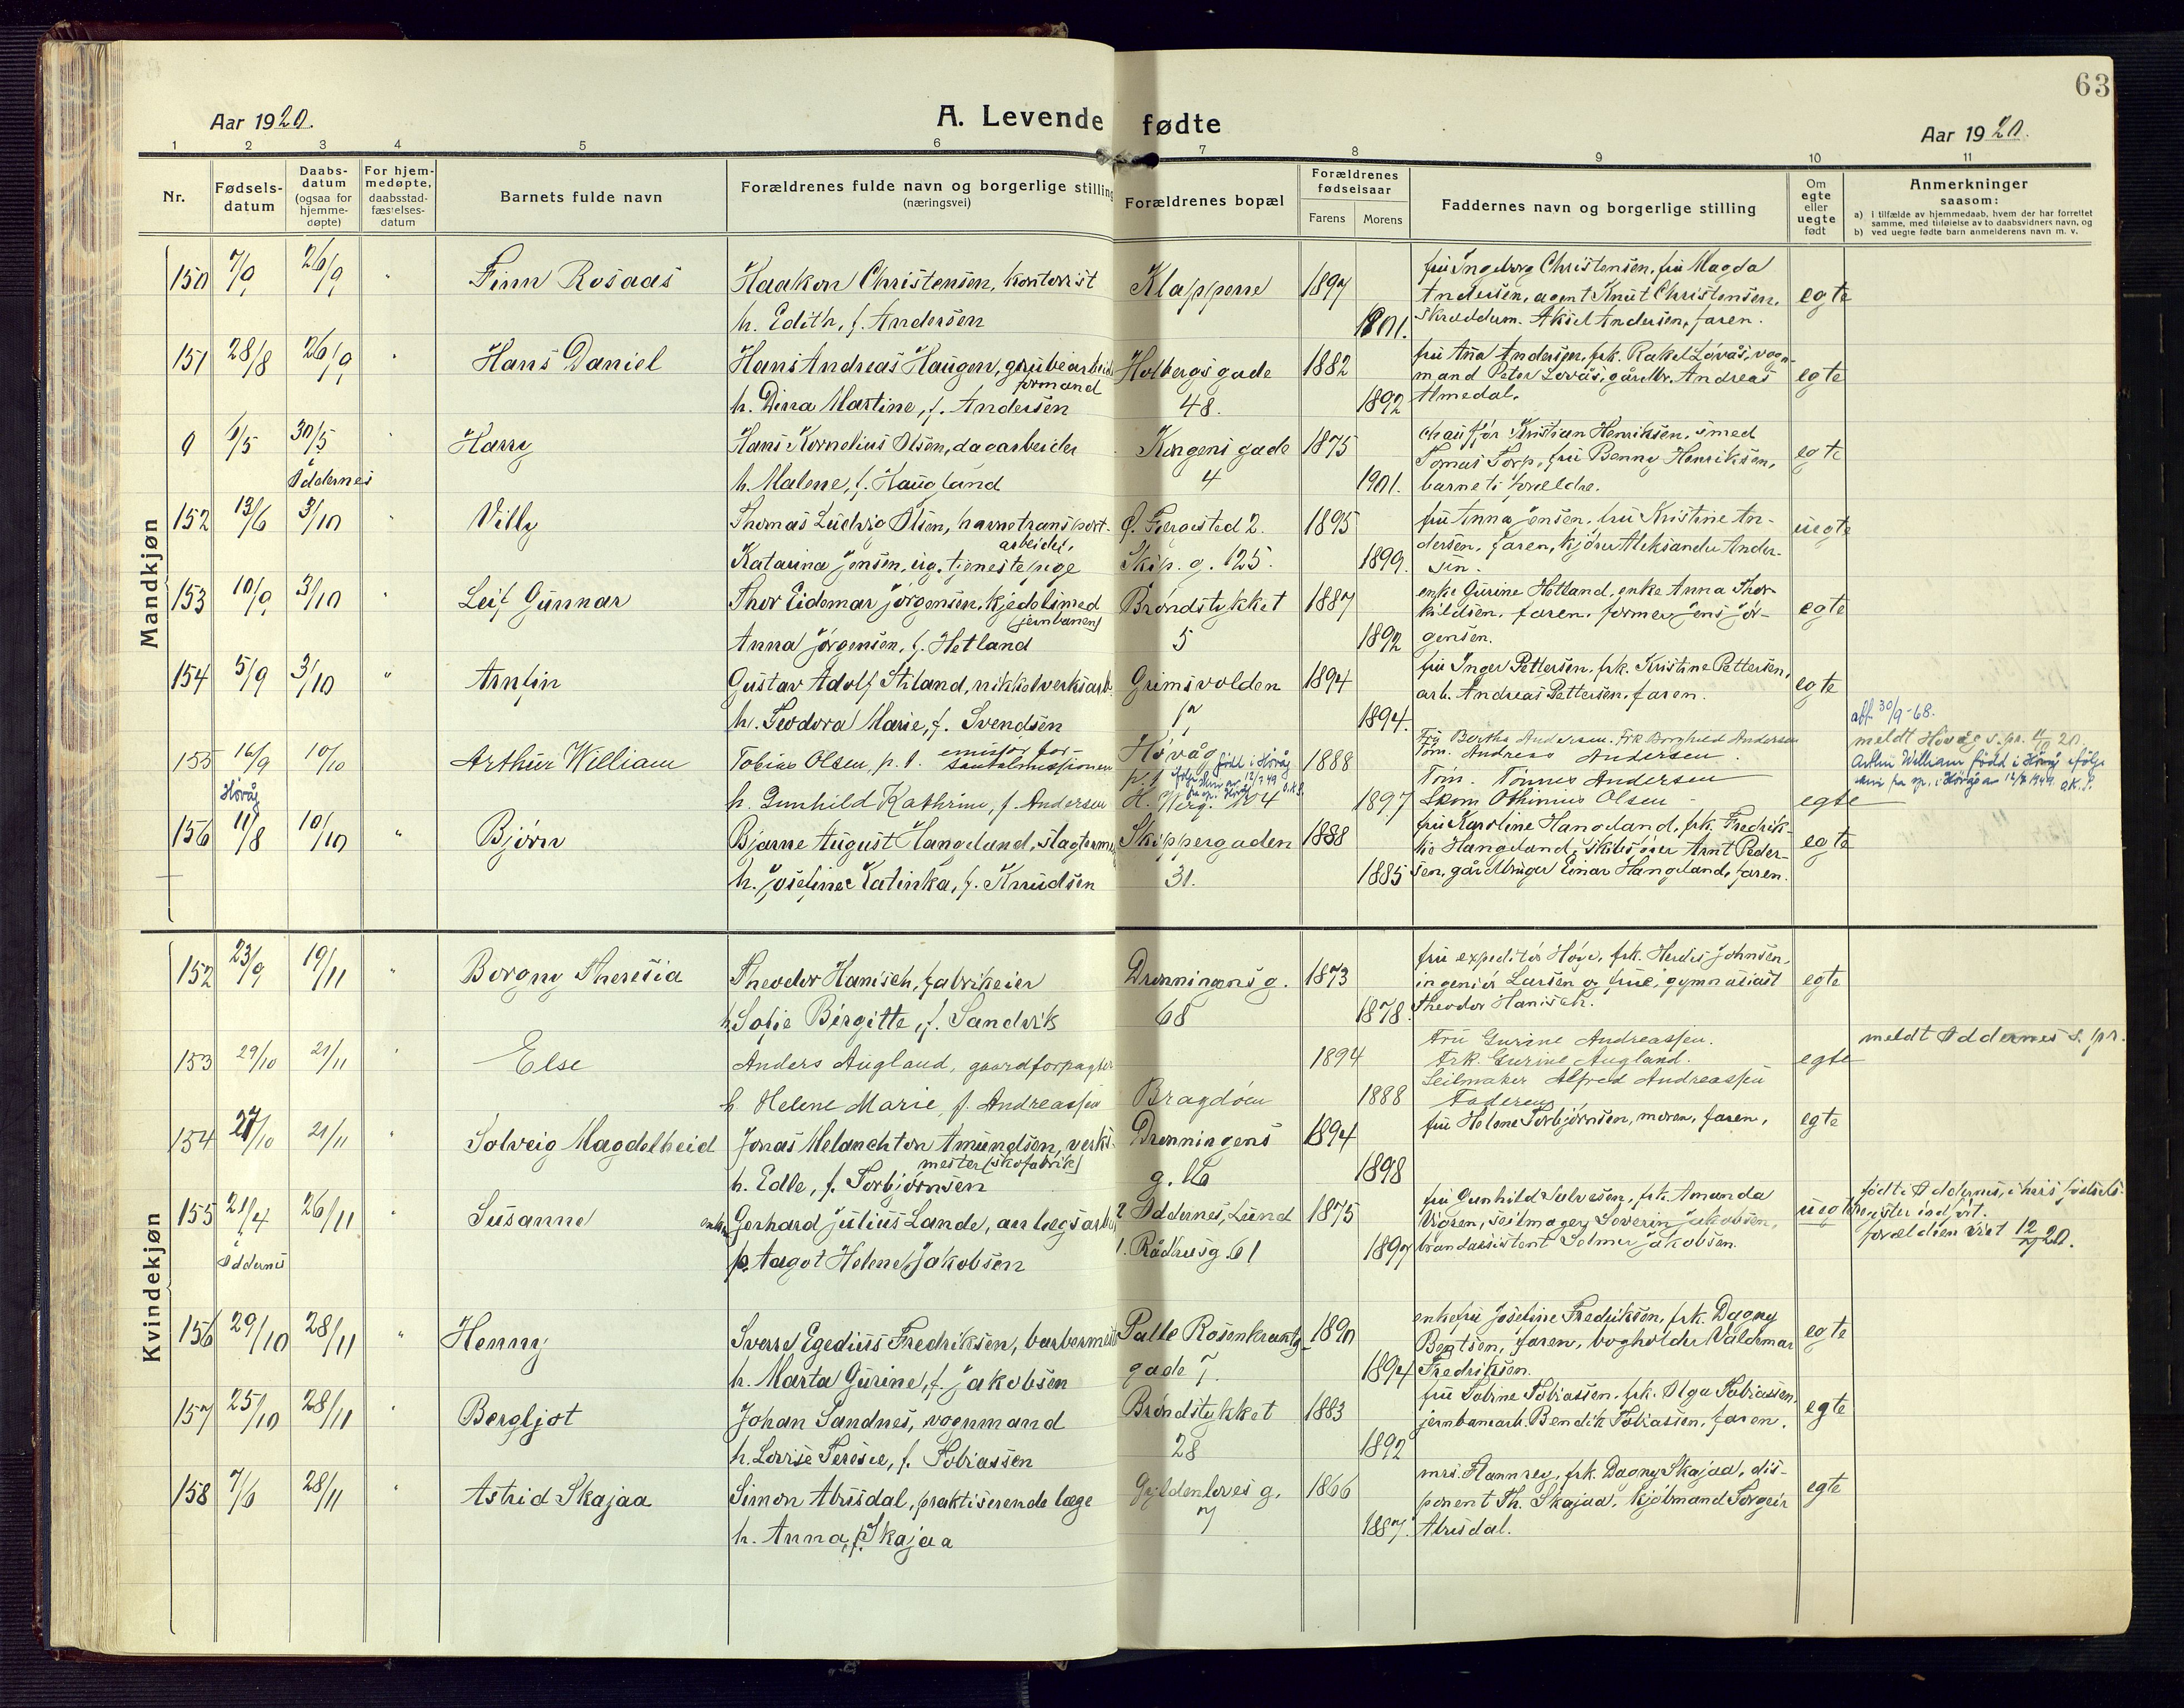 63
Aar 1920.
A. Levende fødte
Aar 1920.
1 2 3 4 5 6 7 8 9 10 11
Nr.
Fødsels-datum
Daabs-datum (ogsaa for hjemme-døpte)
For hjem-medøpte, daabsstad-fæstelses-datum
Barnets fulde navn
Forældrenes fulde navn og borgerlige stilling
(næringsvei)
Forældrenes bopæl
Forældrenes fødselsaar
Farens Morens
Faddernes navn og borgerlige stilling
Om egte eller uegte født
Anmerkninger
saasom:
a) i tilfælde av hjemmedaab, hvem der har forrettet samme, med tilføielse av to daabsvidners navn, og
b) ved uegte fødte barn anmelderens navn m. v.
Mandkjøn
150 7/9 26/9 " Finn Rosaas Haakon Christensen, kontorist Klappene 1897 fru Ingeborg Christensen, fru Magda
Andersen, agent Knut Christensen, egte
h. Edith, f. Andersen 1901. skræddem. Aksel Andersen, faren.
151 28/8 26/9 " Hans Daniel Hans Andreas Haugen, grubearbeid Holbergsgade 1882 fru Ana Andersen, frk. Rakel Lovås, vogn-
formand mand Peter Lovås, gårdbr. Andreas egte
h. Dina Martine, f. Andersen 48. 1892 Almedal.
9 6/5 30/5 " Harry Hans Kornelius Olsen, dagarbeider Kongensgade 1875 chauffør Kristian Henriksen, smed
Oddernes Tomas Torp, fru Benny Henriksen, egte
h. Malene, f. Haugland 4 1901. barnets forældre.
152 13/6 3/10 Villy Thomas Ludvig Olsen, havnetransport- f. Tjergested 2. 1895 fru Anna Jensen, fru Kristine An-
arbeider, dersen, faren, kjører Aleksander Ander- uegte
Katarina Jensen, ug. tjenestepige Skip. g. 125. 1899. sen.
153 10/9 3/10 " Leif Gunnar Thor Eidemar Jørgensen, kjedelsmed Brøndstykket 1887 enke Gurine Hetland, enke Anna Thor-
(jernbanen) kildsen, faren, former Jens Jør- egte
Anna Jørgensen, f. Hetland 5 1892 gensen.
154 5/9 3/10 " Arnfin Gustav Adolf Stiland, nikkelverksarb. Grimsvolden 1894 fru Inger Pettersen, frk. Kristine Pettersen,
arb. Andreas Pettersen, faren. egte
h. Teodora Marie, f. Svendsen 1894.
155 16/9 10/10 Arthur William Tobias Olsen, p. t. emisær for Høvåg 1888 Fru Bertha Andersen. Frk Borghild Andersen
Santalmissionen Tøm. Andreas Andersen
Høvåg født i Høvåg Tøm. Tønnes Andersen
h. Gunhild Kathrine, f. Andersen 1897 Skom. Othinius Olsen egte
att. 30/9-68.
meldt Høvåg s. pr.
Arthur William født i Høvåg ifølge
156 11/8 10/10 " Bjørn Bjarne August Hangeland, slagterm Skippergaden 1888 fru Karoline Hangeland, frk. Fredrik-
ke Hangeland, skibsfører Arnt Peder- egte
h. Josefine Katinka, f. Knudsen 31. 1885 sen, gårdbruger Einar Hangeland, faren.
Kvindekjøn
152 23/9 19/11 " Borgny Theresia Theodor Hanisch, fabrikeier Dronningensg. 1873 fru expeditør Høye, frk. Herdis Johnsen,
ingeniør Larsen og frue, gymnasiast egte
h. Sofie Birgitte, f. Sandvik 68 1878. Theodor Hanisch.
153 29/10 21/11 " Else Anders Augland, gaardforpagter 1894 Fru Gurine Andreassen.
Frk. Gurine Augland. egte meldt Oddernes s. pr.
Seilmaker Alfred Andreassen
h Helene Marie, f. Andreassen Bragdøen 1888 Faderen
154 27/10 21/11 " Solveig Magdelheid Jonas Melanchton Amundsen, verks- Dronningens 1894 fru Helene Torbjørnsen, moren, faren, egte
mester (skofabrik)
h. Edle, f. Torbjørnsen 1898
155 21/4 26/11 " Susanne enkem. Gerhard Julius Lande, anlægsarb. 2 Oddernes, Lund 1875 fru Gunhild Salvesen, frk. Amanda
Oddernes Vigren, seilmager Severin Jakobsen, uegte
p. Aagot Helene Jakobsen 1. Rådhusg. 61 1897 brandassistent Selmer Jakobsen.
født i Oddernes, i hvis fødsels-
register indført.
forældrene viet 12/7 20.
156 29/10 28/11 " Henny Sverre Egedius Fredriksen, barbermester Palle Rosenkrantz- 1890 enkefru Josefine Fredriksen, frk. Dagny
Bentsen, faren, bogholder Valdemar egte
h. Marta Gurine, f. Jakobsen gade 7. 1894 Fredriksen.
157 25/10 28/11 " Bergljot Johan Sandnes, vognmand Brøndstykket 1883 fru Sabine Tobiassen, frk. Olga Tobiassen,
jernbanearb. Bendik Tobiassen, faren. egte
h. Lovise Terese, f. Tobiassen 28 1892
158 7/6 28/11 " Astrid Skajaa Simon Abusdal, praktiserende læge Gyldenløves g. 1866 mrs. Hannrey, frk. Dagny Skajaa, dis-
ponent Th. Skajaa, kjøbmand Torgeir egte
h. Anna, f. Skajaa 7 1887. Abusdal.